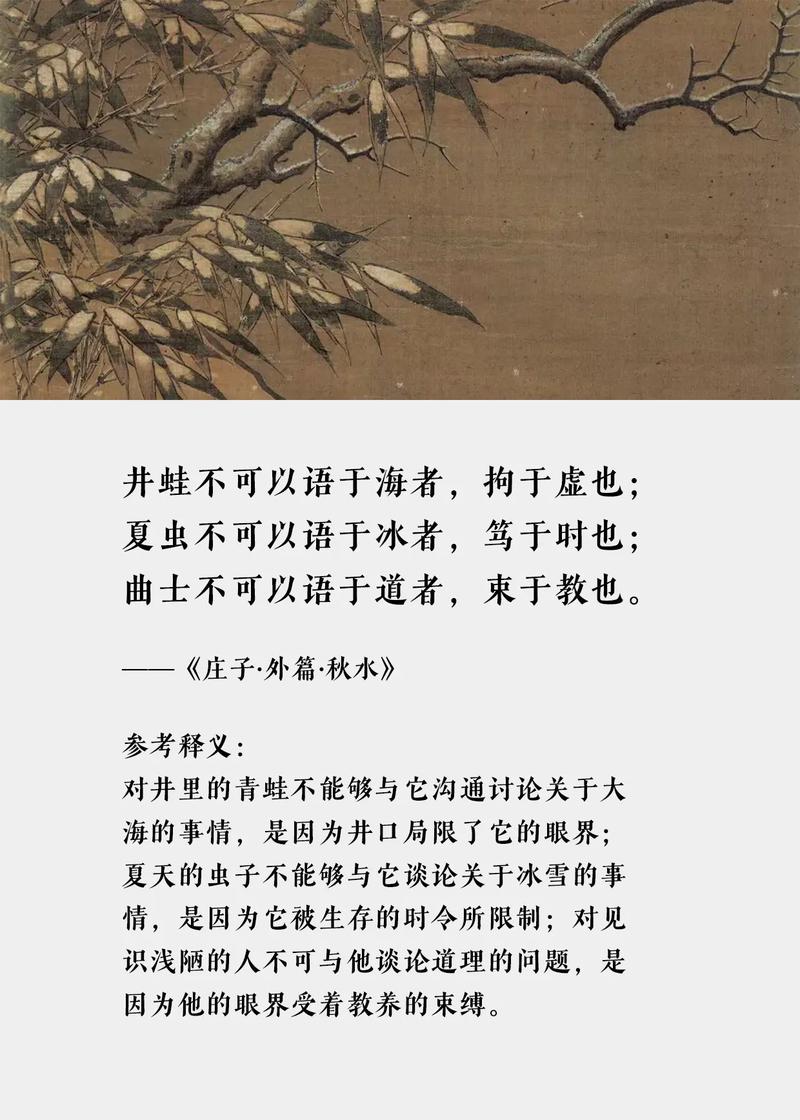 井蛙不可以语于海者，拘于虚也；
夏虫不可以语于冰者，笃于时也；
曲士不可以语于道者，束于教也。
——《庄子·外篇·秋水》
参考释义：
对井里的青蛙不能够与它沟通讨论关于大
海的事情，是因为井口局限了它的眼界；
夏天的虫子不能够与它谈论关于冰雪的事
情，是因为它被生存的时令所限制；对见
识浅陋的人不可与他谈论道理的问题，是
因为他的眼界受着教养的束缚。